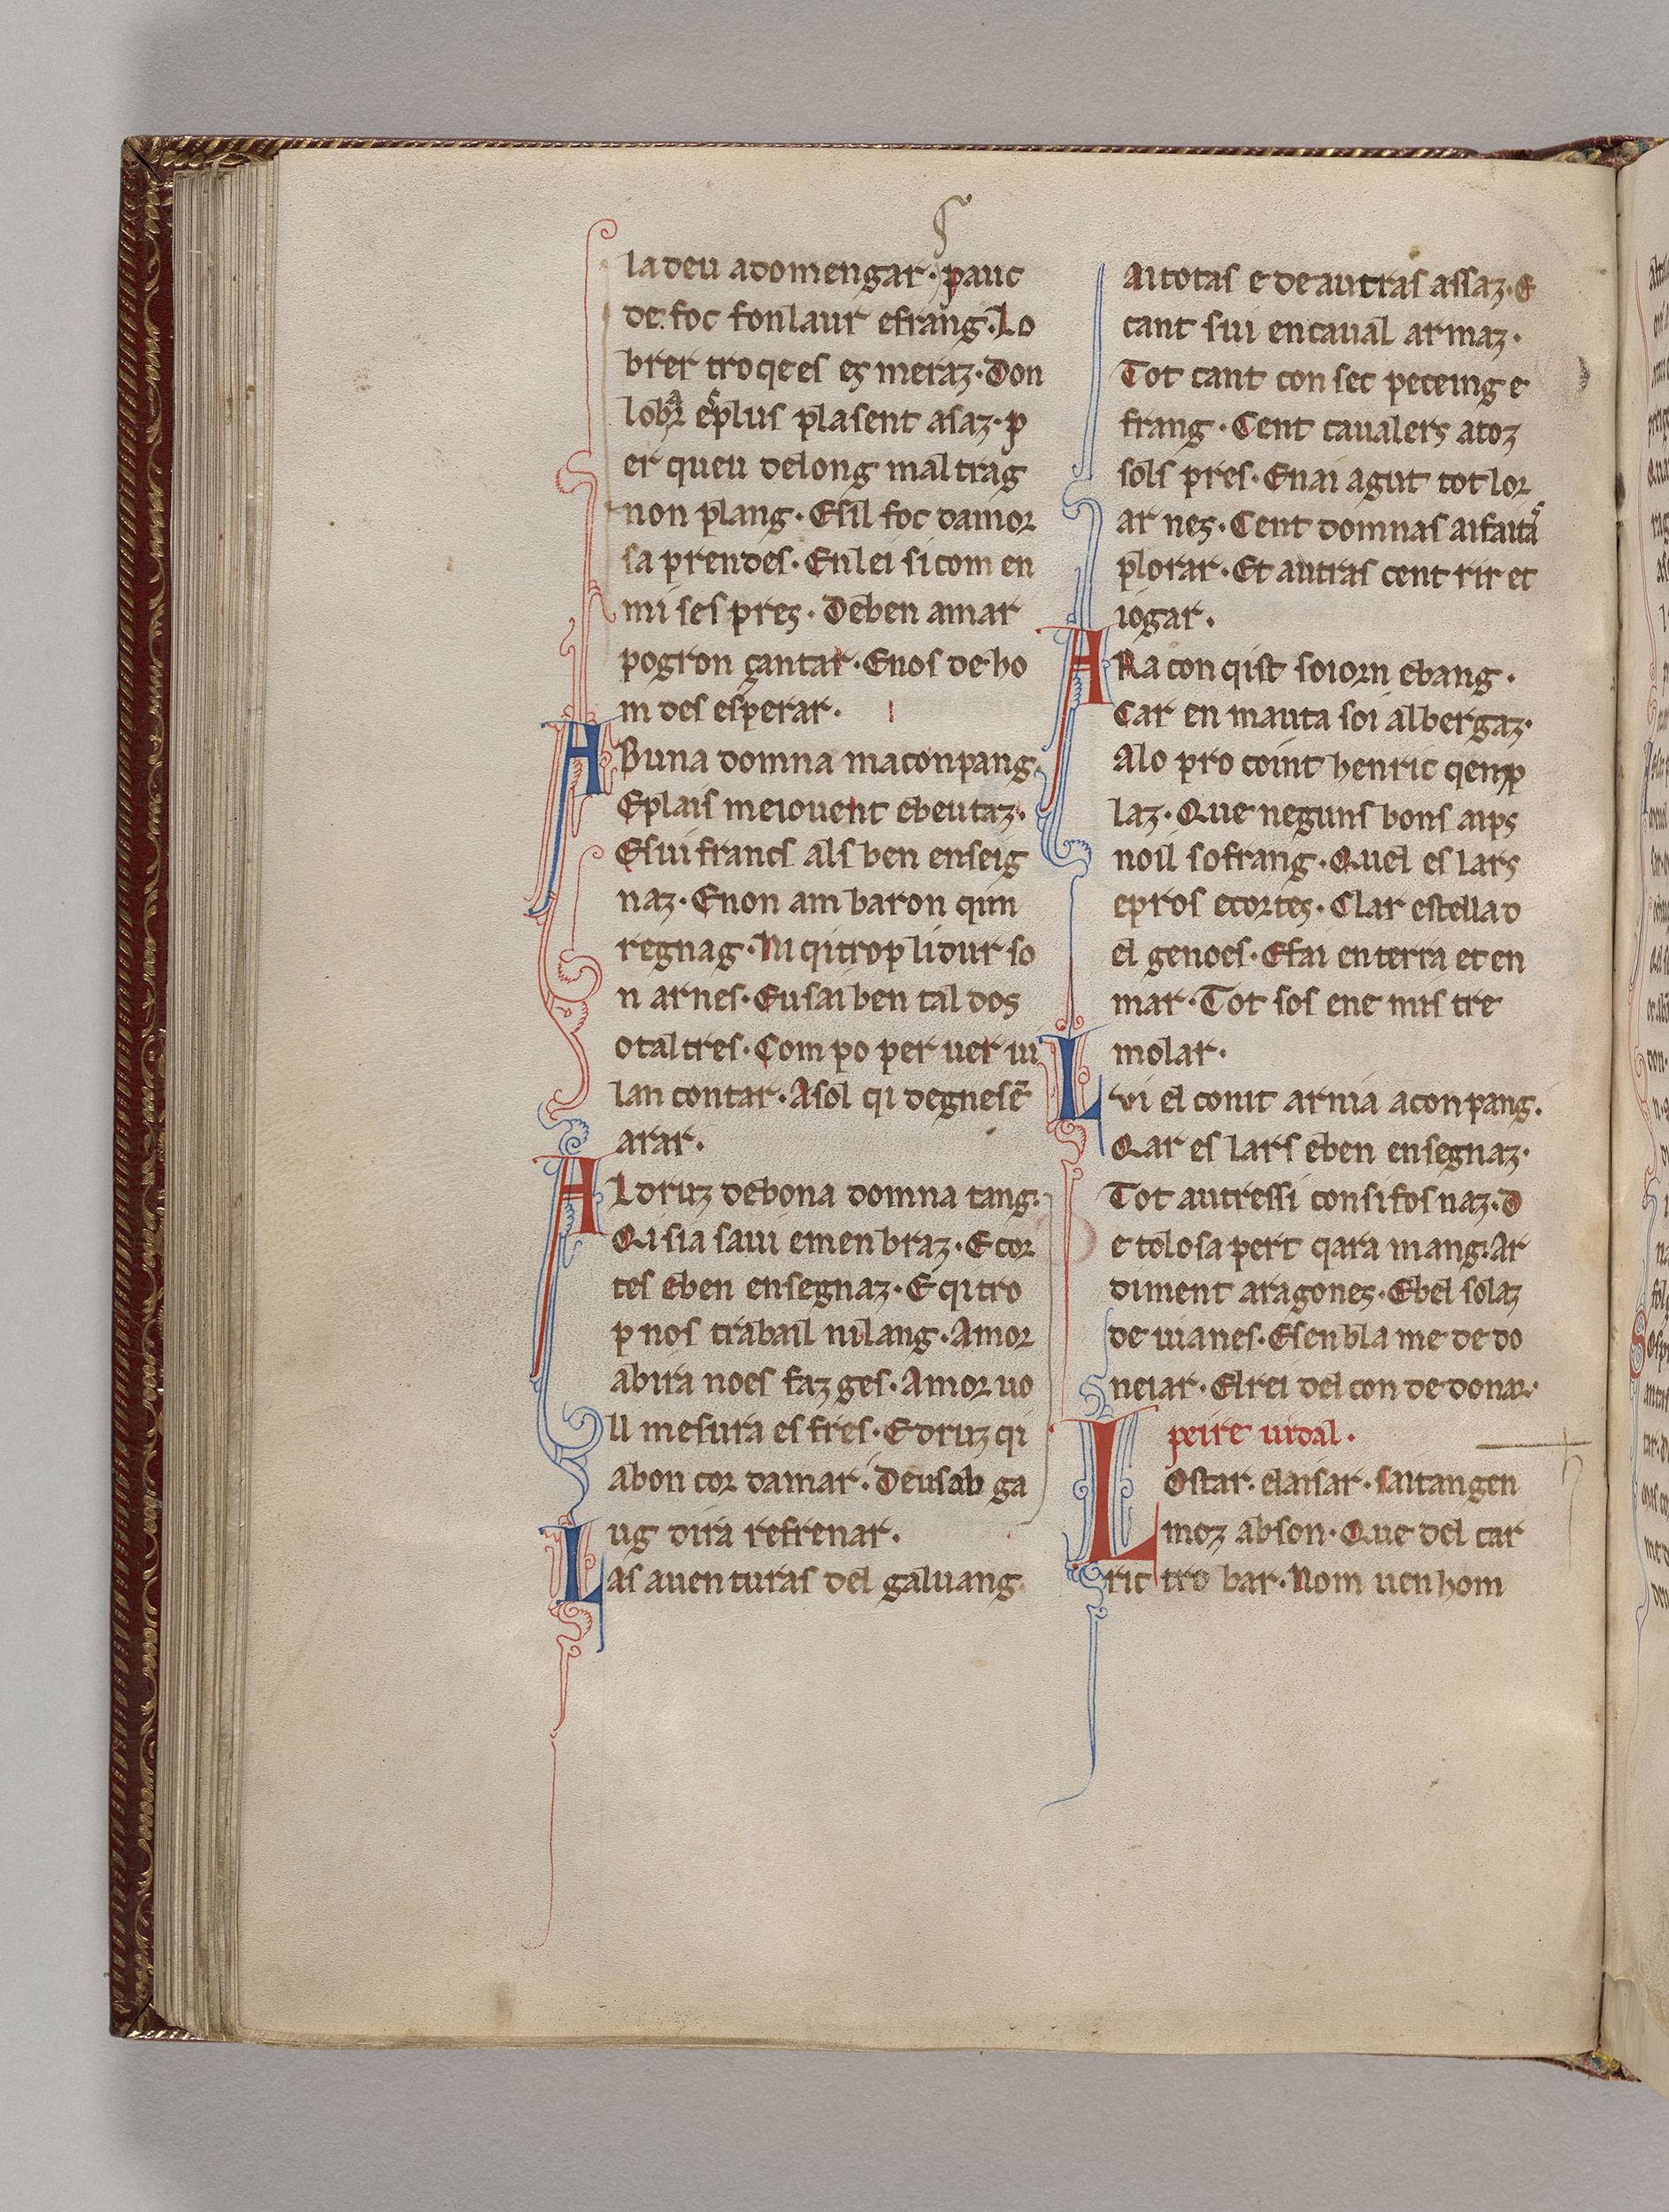 la deu adomengar · pauc
de foc fonlaur efrang · Lo
brer tro qe es es meraz · Don
er queu delong maltrag
non plang · Esil foc damor
sa prendes · Enlei si com en
mi ses pres · Deben amar
pogron çantar · Enos de ho
m des esperar ·
ABuna domna maconpang ·
Eplais meiouent ebeutaz ·
Esui francs als ben enseig
naz · Enon am baron qun
regnag · Ni qi trop li dur so
n arnes · Eu sai ben tal dos
o tal tres · Com po per uer iu
lan contar · Asol qi degnesē
arar ·
ALdruz debona domna tang ·
Qi sia saui emenbraz · E cor
tes eben ensegnaz · E qi tro
p nos trabail nilang · Amor
abira noes faz ges · Amor uo
ll mesura es fres · E druz qi
abon cor damar · Deus ab ga
ug dira refrenar ·
Las auenturas del galuang ·
aitotas e de autras assaz · E
cant sui encaual armaz ·
Tot cant con sec peceing e
frang · Cent caualers atoz
sols pres · Enai agut tot lor
ar nes · Cent domnas aifaita
plorar · Et autras cent rir et
iogar ·
ARa con qist soiorn ebang ·
Car en mauta soi albergaz ·
Alo pro coint henric qemp
laz · Que neguns bons aips
noil sofrang · Quel es lars
epros ecortes · Clar estella d
el genoes · Efai enterra et en
mar · Tot sos ene mis tre
molar ·
Lvi el conit arnia aconpang ·
Qar es lars eben ensegnaz ·
Tot autressi consifos naz · D
e tolosa pert qara mang · Ar
diment aragones · Ebel solaz
de uianes · Esenbla me de do
neiar · El rei del con de donar ·
peire uidal ·
LOstar · elaisar · saitangen
moz abson · Que del car
ric tro bar · Nom uen hom